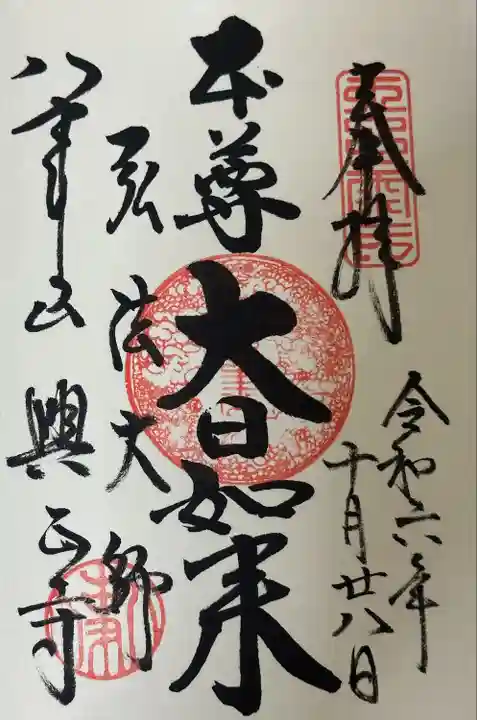 奉拝
令和六年
十月廿八日
本尊
大日如来
弘法大師
八事山 興正寺